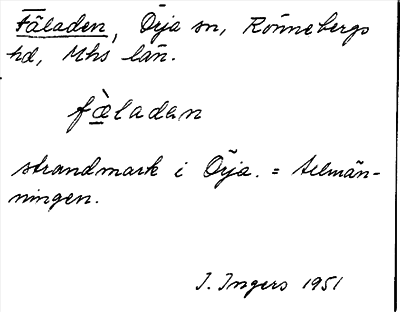 Fäladen, Örja sn, Rönnebergs
hd, Mhs län.
fæ̀ladan
strandmark i Örja. = Allmän-
ningen.
I. Ingers 1951